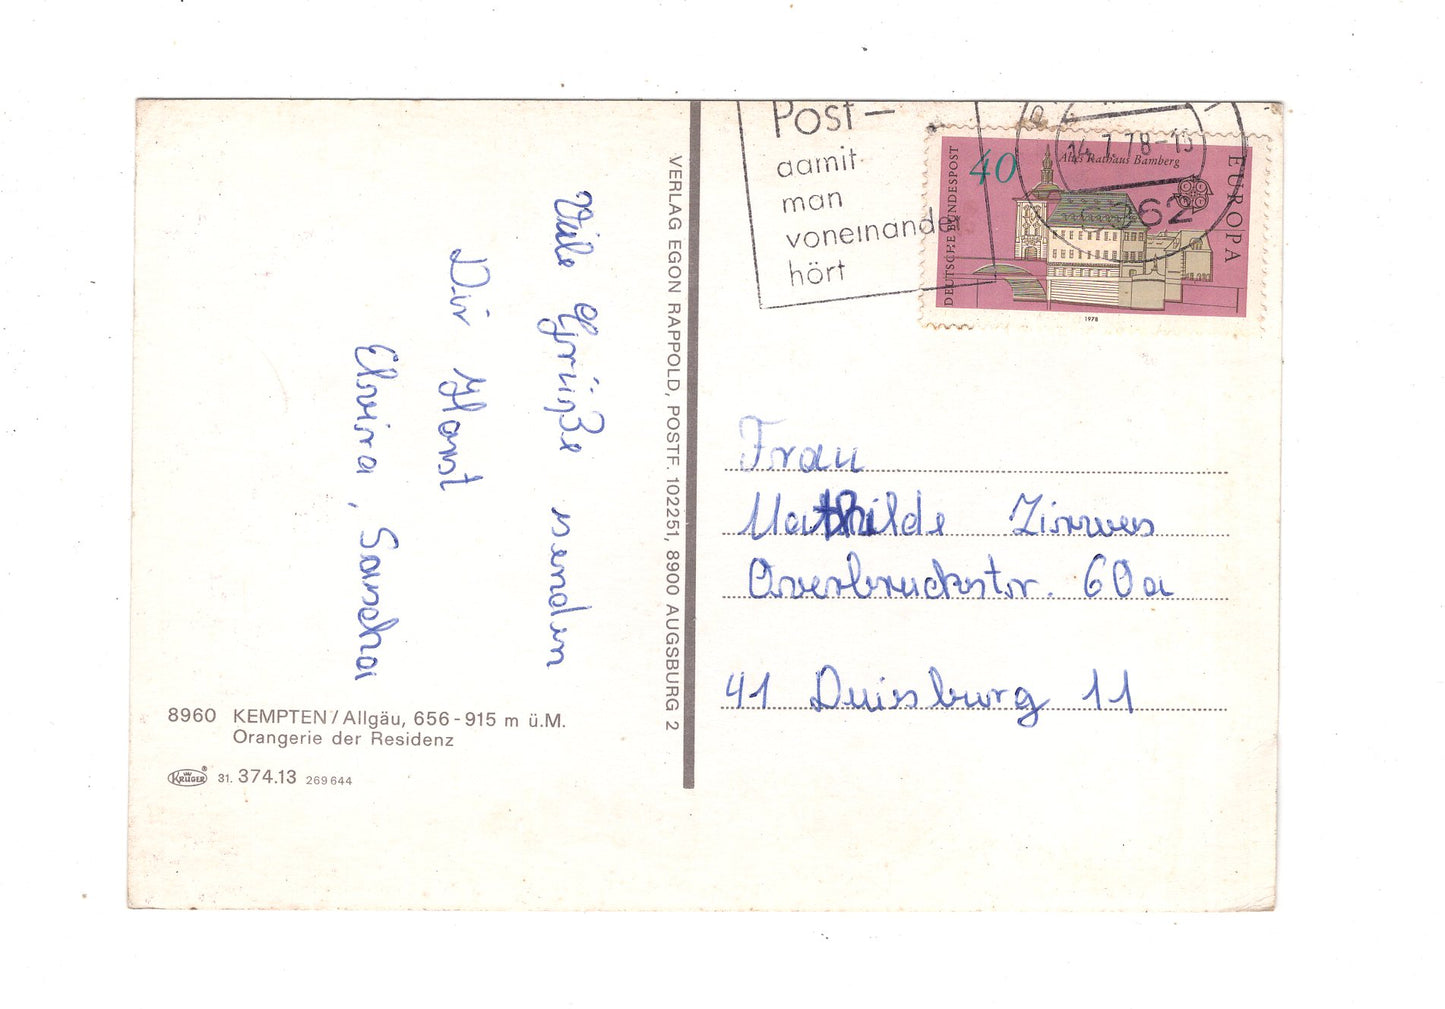 Viele Grüße senden
Dir Horst
Elvira, Sascha
8960 KEMPTEN/Allgäu, 656-915 m ü.M.
Orangerie der Residenz
KRÜGER 31. 374.13 269644
VERLAG EGON RAPPOLD, POSTF. 102251, 8900 AUGSBURG 2
Post—
damit
man
voneinander
hört
14.7.78-15
DEUTSCHE BUNDESPOST
40
Altes Rathaus Bamberg
EUROPA
1978
Frau
Mathilde Zirwes
Overbruckstr. 60a
41 Duissburg 11